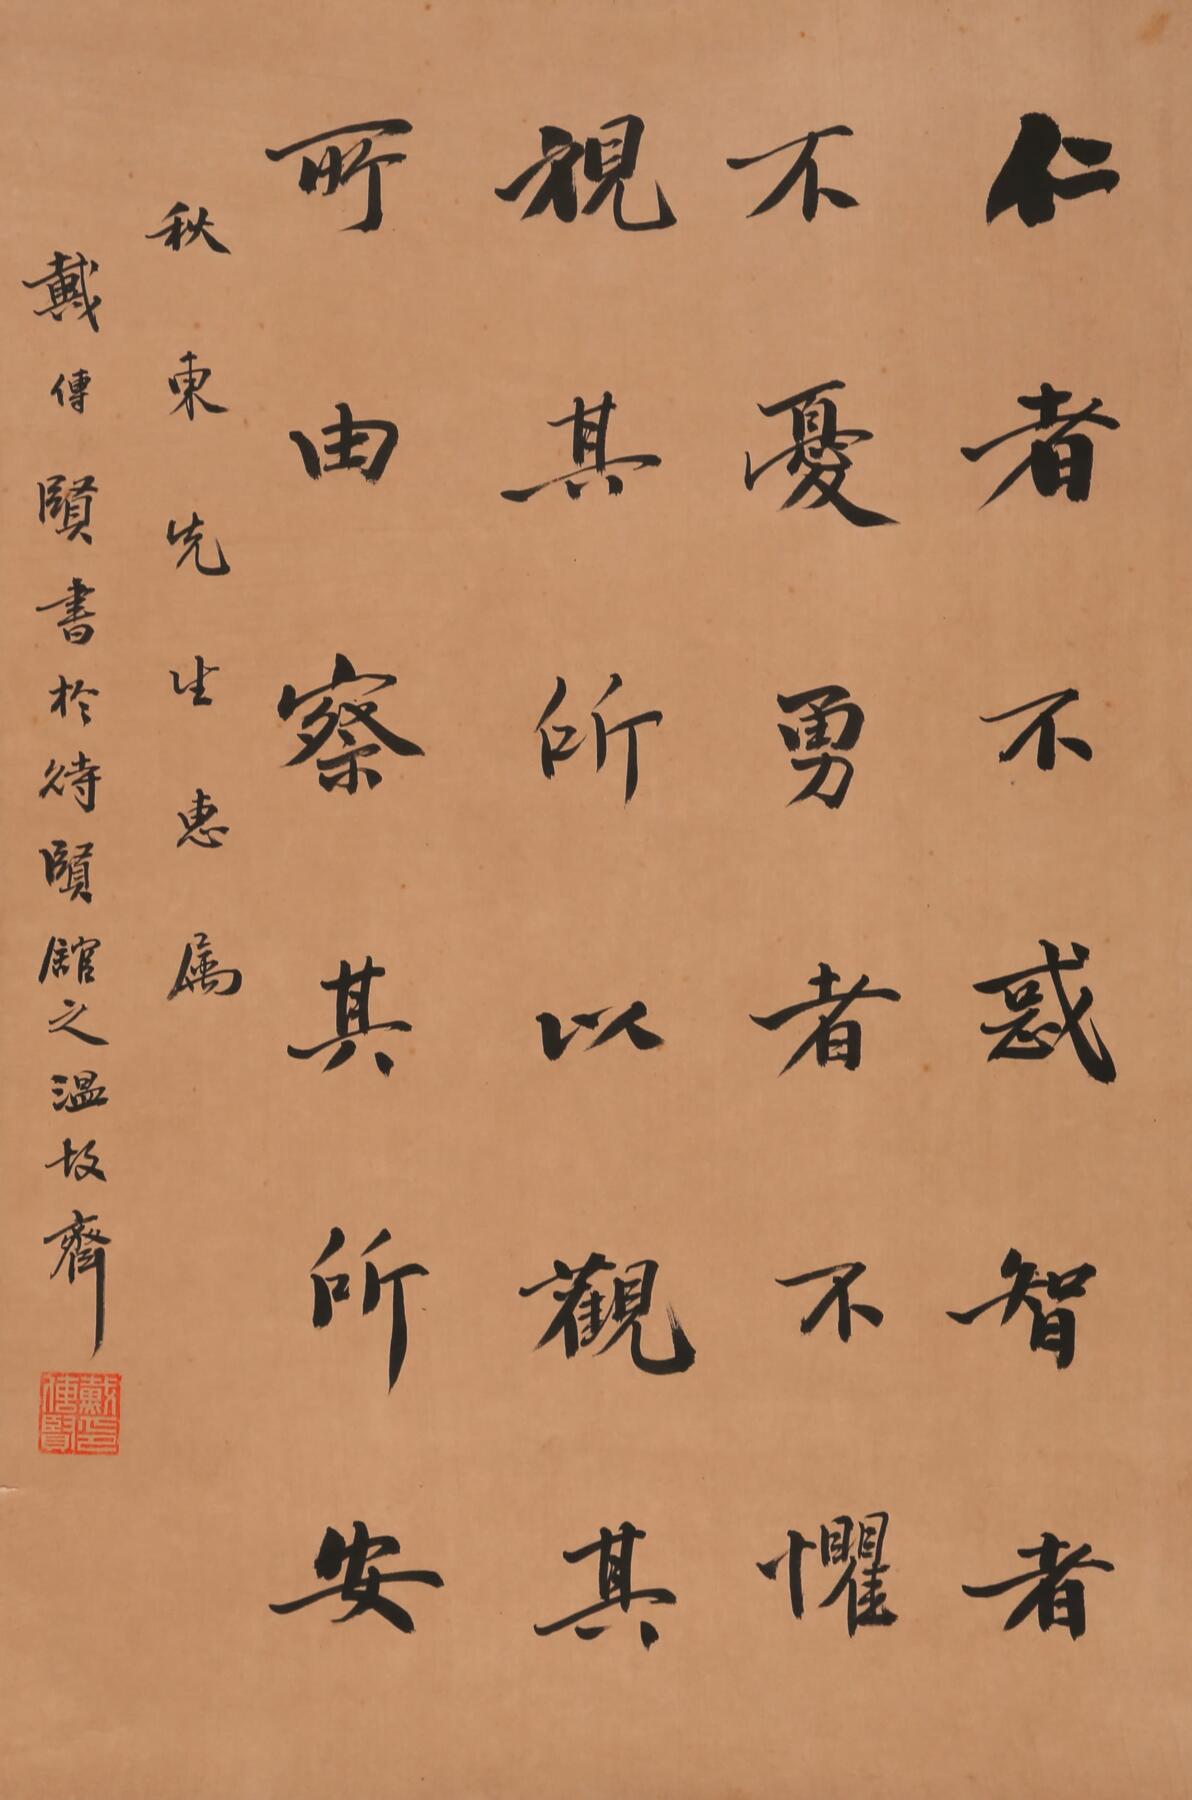 仁者不惑智者
不憂勇者不懼
視其所以觀其
所由察其所安
秋東先生惠属
戴傳賢書於待賢館之温故齋
戴傳賢印